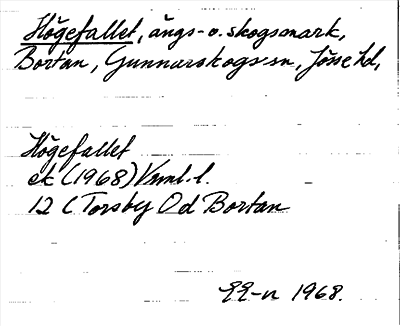 Högefallet, ängs- o. skogsmark,
Bortan, Gunnarskogs sn, Jösse hd,
Högefallet
ek (1968) Vrml. l.
12 C Torsby 0 d Bortan
1968.